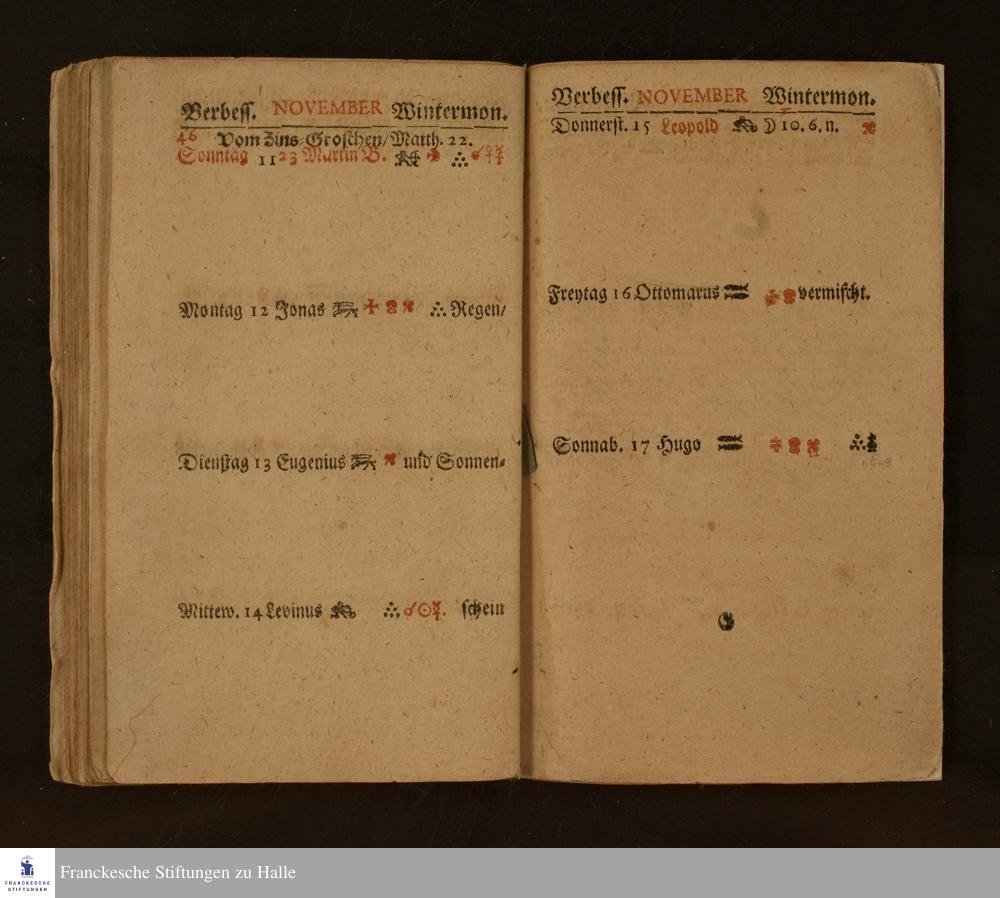 Verbeſſ. NOVEMBER Wintermon.
46 Vom Zins-Groſchen/Matth. 22.
Sonntag 11 23 Martin B. ☌♀☿
Montag 12 Jonas Regen/
Dienſtag 13 Eugenius und Sonnen-
Mittew. 14 Levinus ☌☉☿. ſchein
Verbeſſ. NOVEMBER Wintermon.
Donnerſt. 15 Leopold ☽ 10. 6. n.
Freytag 16 Ottomarus vermiſcht.
Sonnab. 17 Hugo
FRANCKESCHE
STIFTUNGEN
Franckesche Stiftungen zu Halle